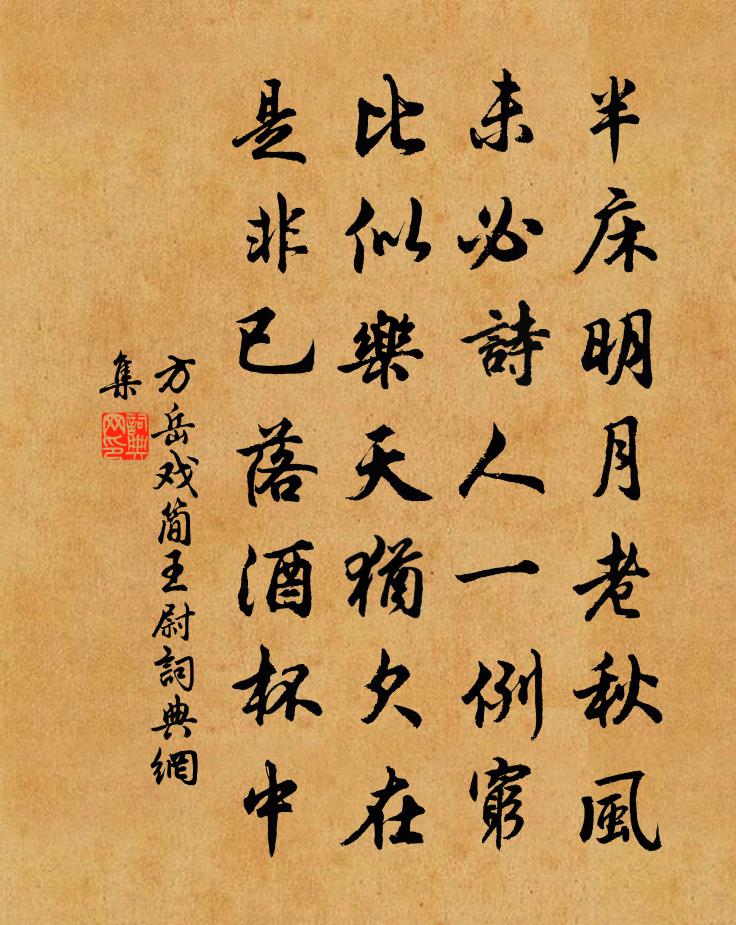 半床明月老秋風
未必詩人一例窮
比似樂天猶欠在
是非已落酒杯中
方岳戏简王尉詞典網
集
詞典網印